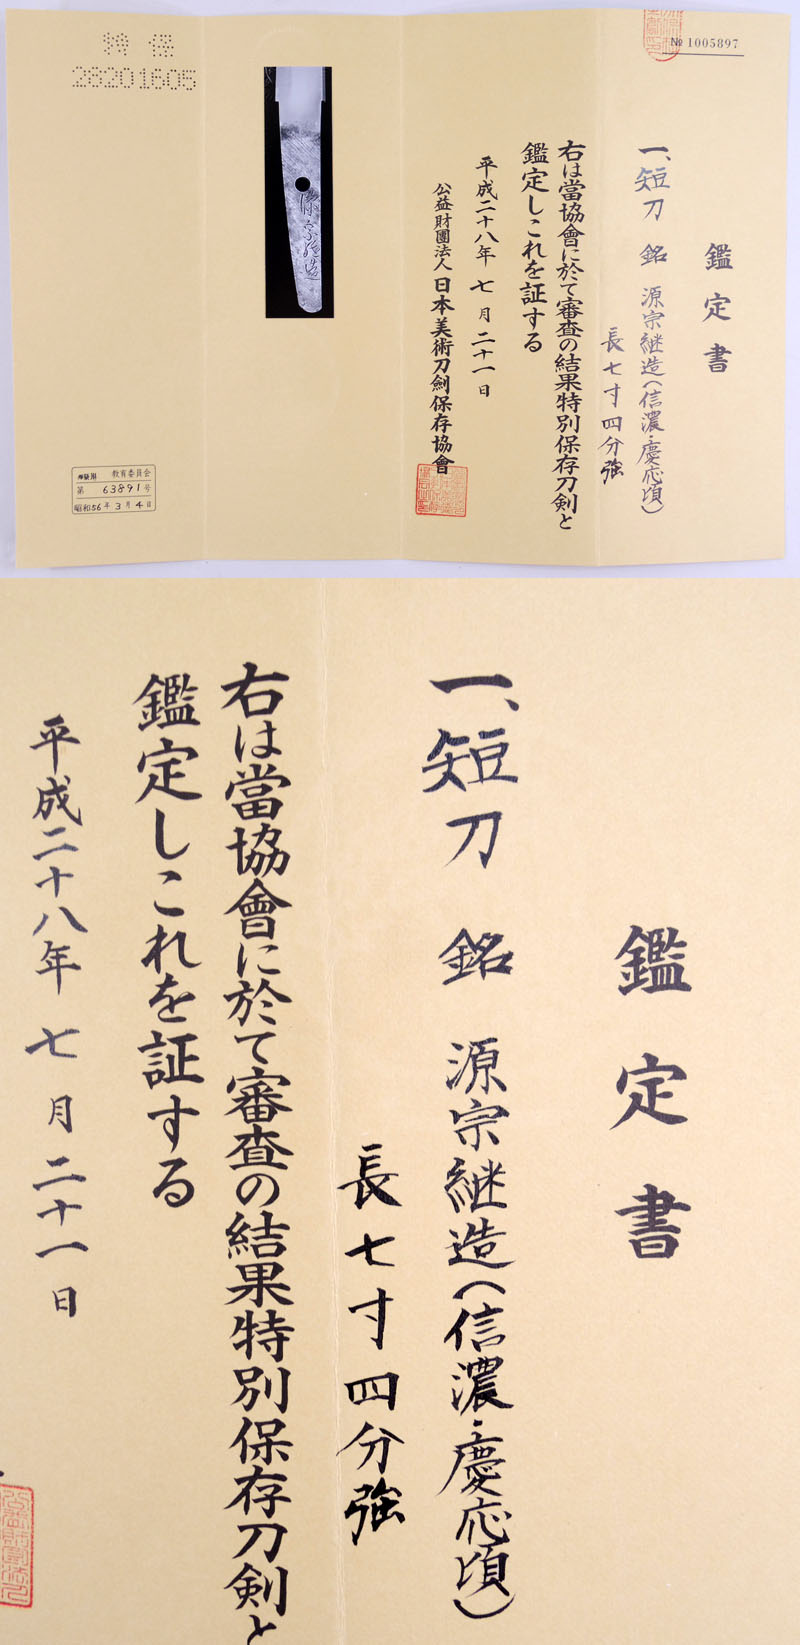 № 1005897
鑑定書
一、短刀 銘 源宗継造(信濃・慶応頃)
長七寸四分強
右は當協會に於て審査の結果特別保存刀剣と
鑑定しこれを証する
平成二十八年 七月 二十一日
公益財團法人 日本美術刀劍保存協會
源宗継造
特保
28201605
教育委員会
第 63891 号
昭和56年 3月 4日
鑑定書
一、短刀 銘 源宗継造(信濃・慶応頃)
長七寸四分強
右は當協會に於て審査の結果特別保存刀剣と
鑑定しこれを証する
平成二十八年 七月 二十一日